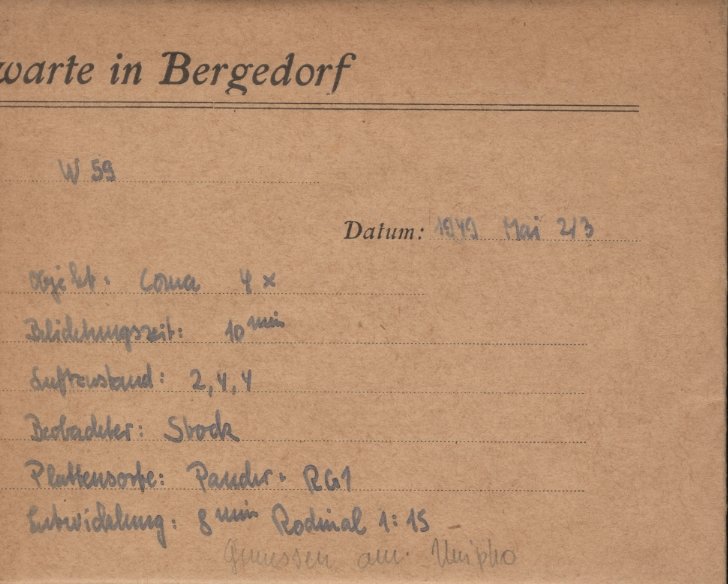 warte in Bergedorf
W 59
Datum: 1949 Mai 2/3
Objekt: Coma 4 x
Belichtungszeit: 10 min
Luftzustand: 2,4,4
Beobachter: Stock
Plattensorte: RG1
Entwicklung: 8 min Rodinal 1:15